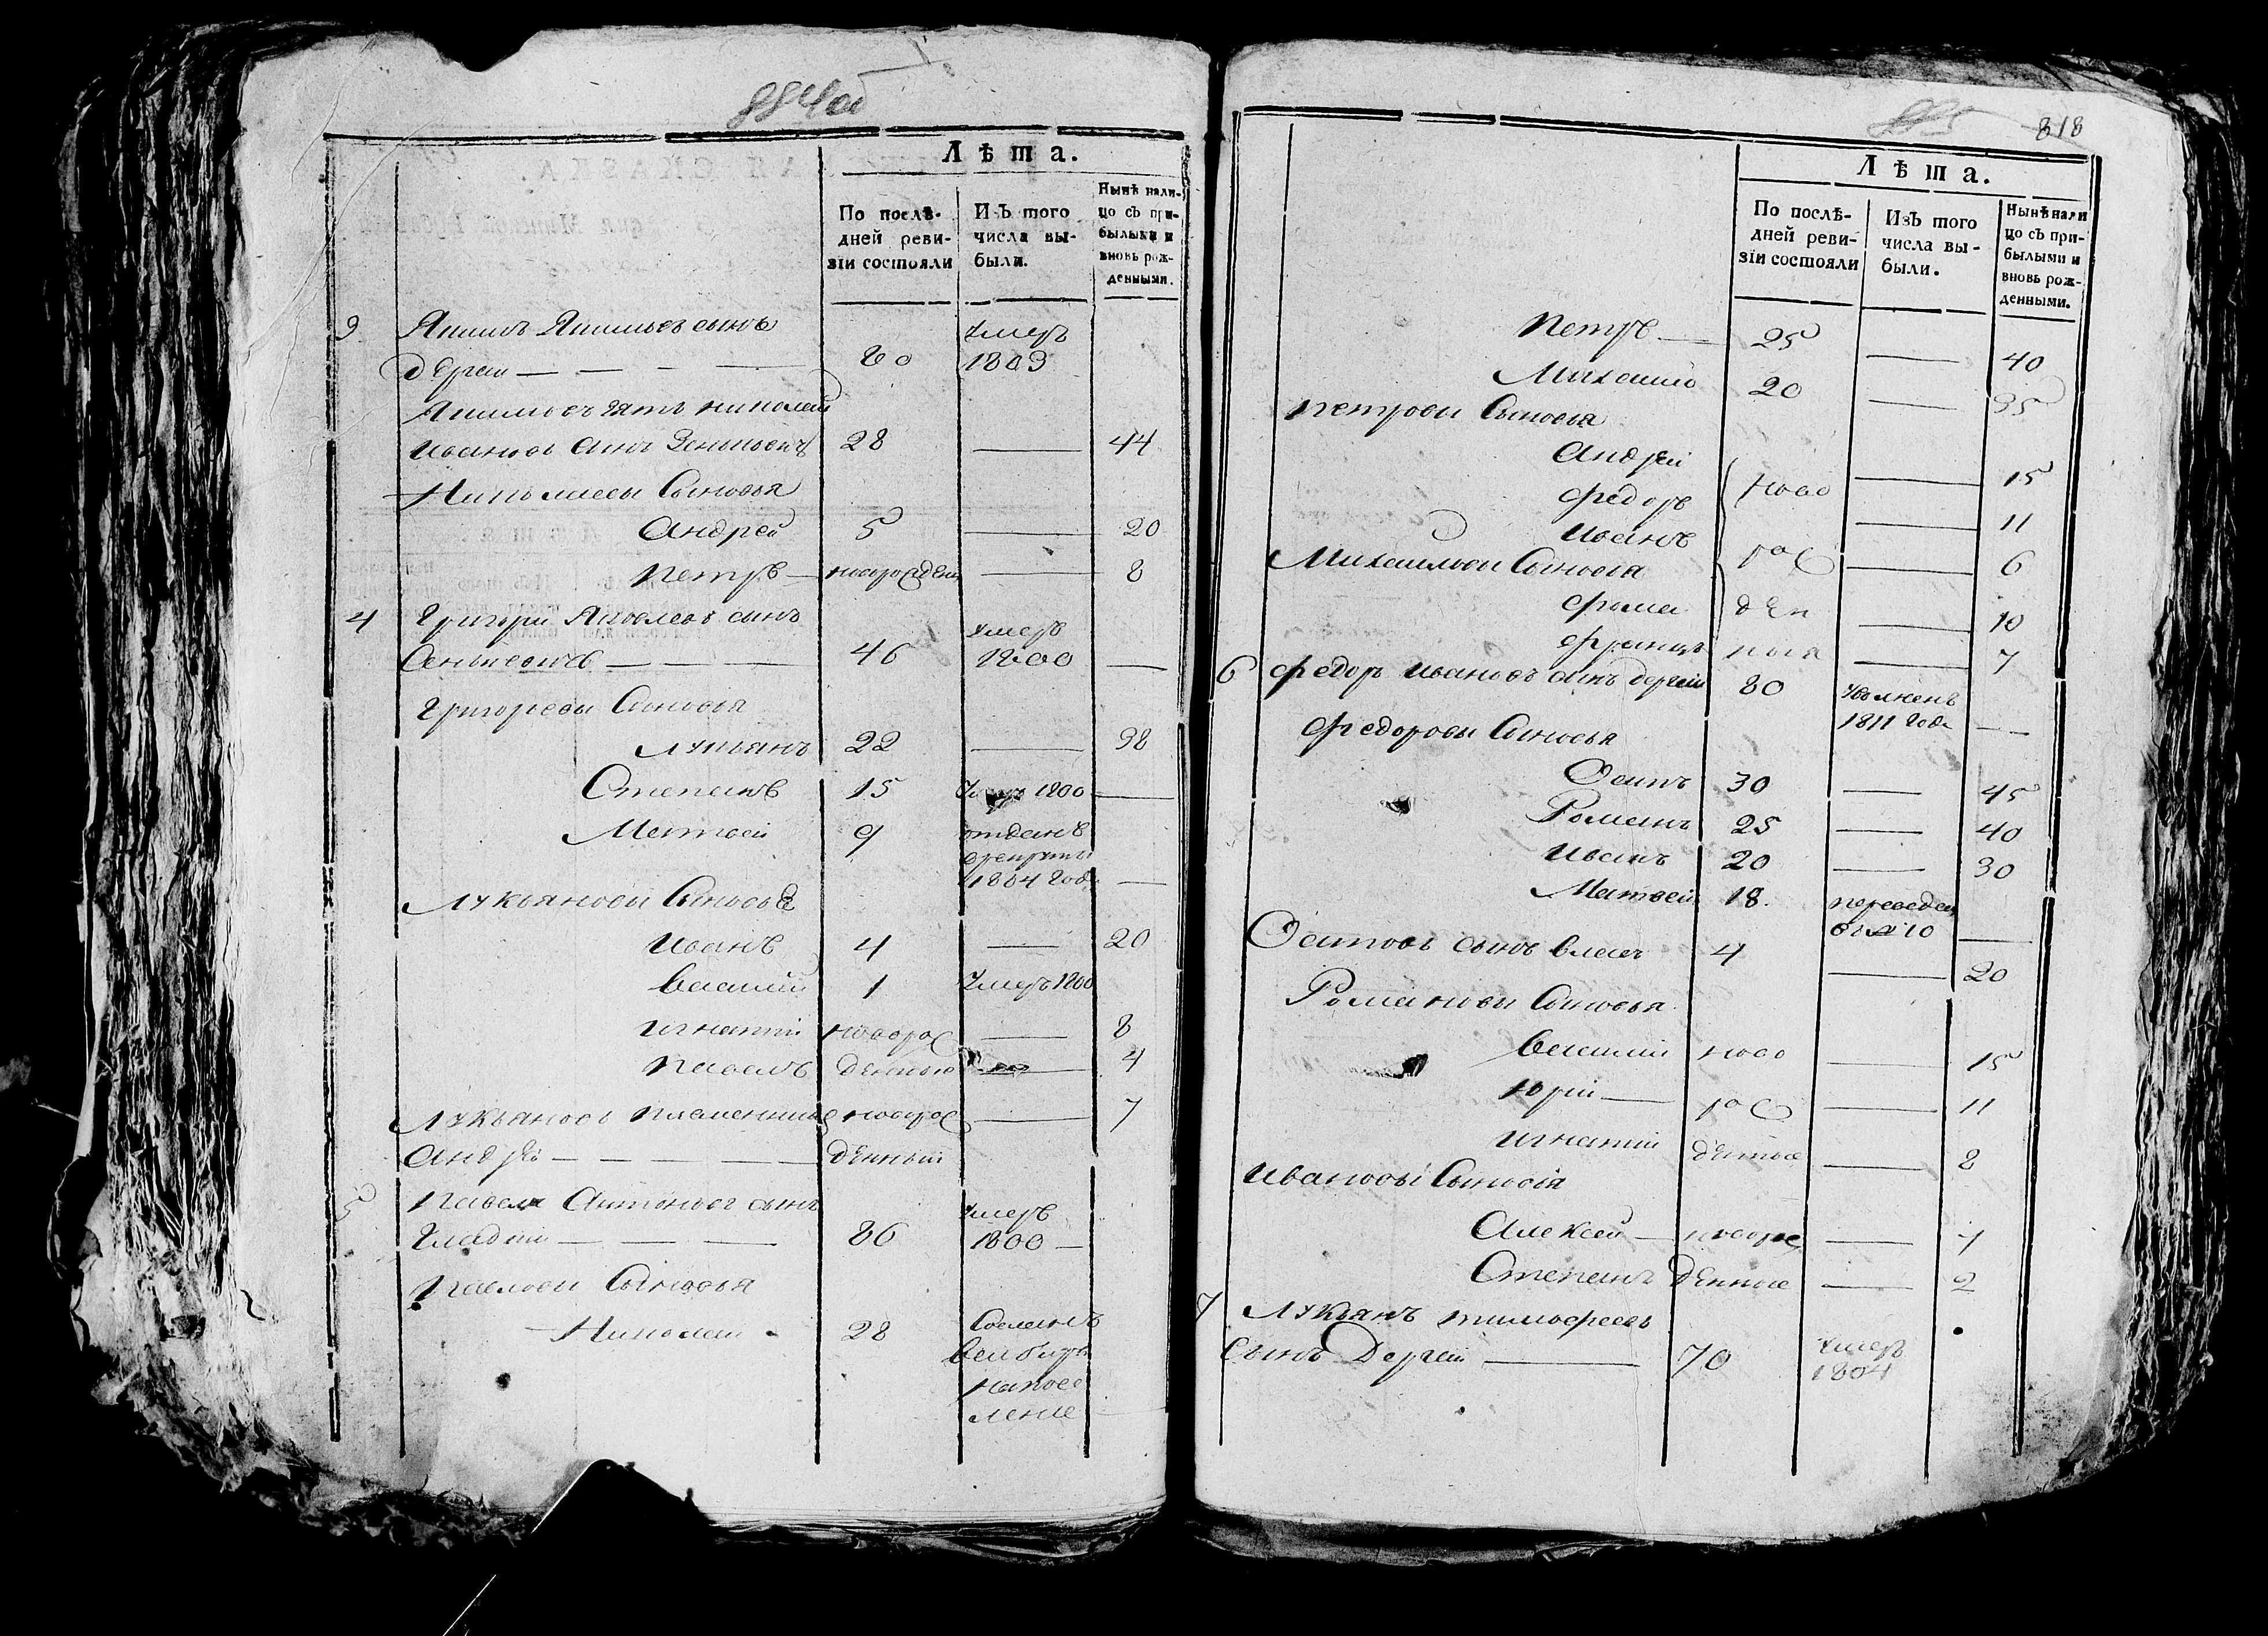 884об
Лѣта.
По послѣ-
дней реви-
зіи состояли
Изъ того
числа вы-
были.
Нынѣ нали-
цо съ при-
былыми и
вновь рож-
денными.
3 Якимъ Якимовъ сынъ
Дергай 80 умеръ 1803
Якимовъ зять Николай
Ивановъ сынъ Зеньковичъ 28 — 44
Николаевы Сыновья
Андрей 5 — 20
Петръ новорожден — 8
4 Григорий Яковлевъ сынъ
Сенькевичъ 46 умеръ 1800 —
Григорьевы Сыновья
Лукьянъ 22 — 38
Степанъ 15 умеръ 1800 —
Матвей 9 отданъ
врекруты
1804 года —
Лукьяновы Сыновья
Иванъ 4 — 20
Василий 1 умеръ 1800
Игнатий новорож — 8
Павелъ денные — 4
Лукьяновъ племянникъ новорож — 7
Андрей денный
5 Павелъ Антоновъ сынъ
Гладкий 86 умеръ 1800 —
Павловы Сыновья
Николай 28 Сосланъ
всибирь
напосе
ление
885 818
Лѣта.
По послѣ-
дней реви-
зіи состояли
Изъ того
числа вы-
были.
Нынѣ нали
цо съ при-
былыми и
вновь рож-
денными.
Петръ 25 — 40
Михайло 20 — 35
Петровы Сыновья
Андрей ново — 15
Федоръ — 11
Иванъ рож — 6
Михайловы Сыновья
Фома ден — 10
Францъ ныя — 7
6 Федоръ Ивановъ сынъ Дергай 80 Уволненъ
1811 года —
Федоровы Сыновья
Осипъ 30 — 45
Романъ 25 — 40
Иванъ 20 — 30
Матвей 18 переведен
въ № 10 —
Осиповъ сынъ Власъ 4 — 20
Романовы Сыновья
Василий ново — 15
Юрий рож — 11
Игнатий денные — 8
Ивановы Сыновья
Алексей новорож — 4
Степанъ денные — 2
7 Лукьянъ Тимофеевъ
Сынъ Дергай 70 умеръ
1804